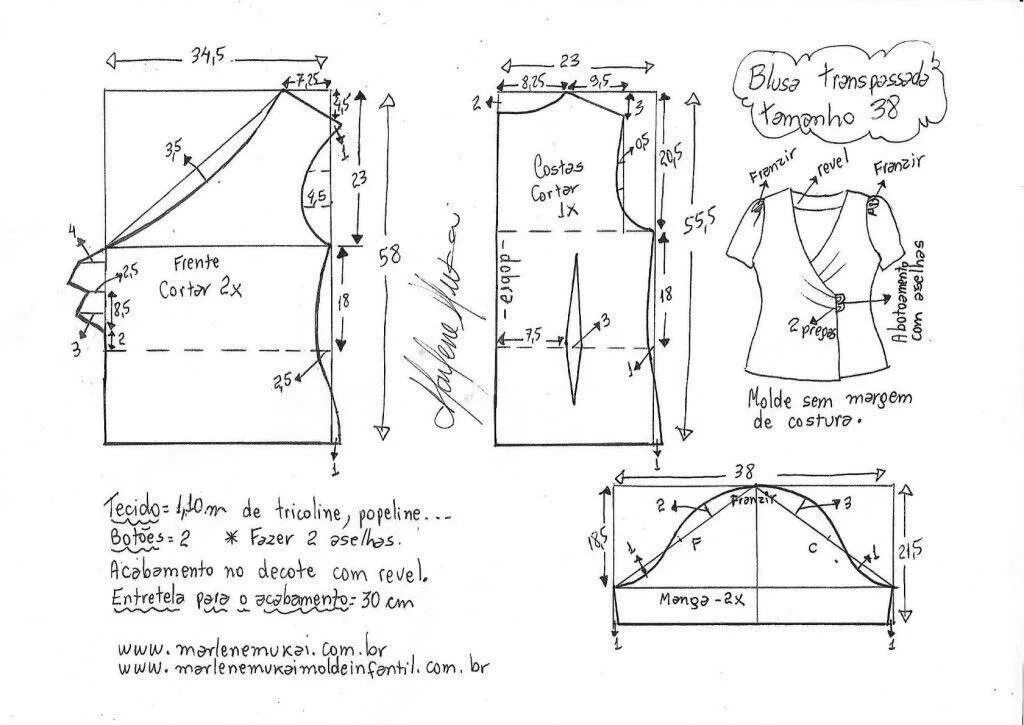 34,5
7,25
4,5
1
3,5
4,5
23
58
4
2,5
8,5
3
2
Frente
Cortar 2x
18
2,5
1
Marlene Mukai
23
8,25
9,5
2
3
0,5
Costas
Cortar
1x
20,5
55,5
-dobra-
18
7,5
3
1
1
Blusa transpassada
tamanho 38
Franzir
revel
Franzir
2 pregas
Abotoamento
com aselhas
Molde sem margem
de costura.
Tecido= 1,10m de tricoline, popeline...
Botões= 2 * Fazer 2 aselhas.
Acabamento no decote com revel.
Entretela para o acabamento= 30 cm
www.marlenemukai.com.br
www.marlenemukaimoldeinfantil.com.br
38
Franzir
2
3
18,5
1
F
C
1
21,5
Manga-2x
1
1